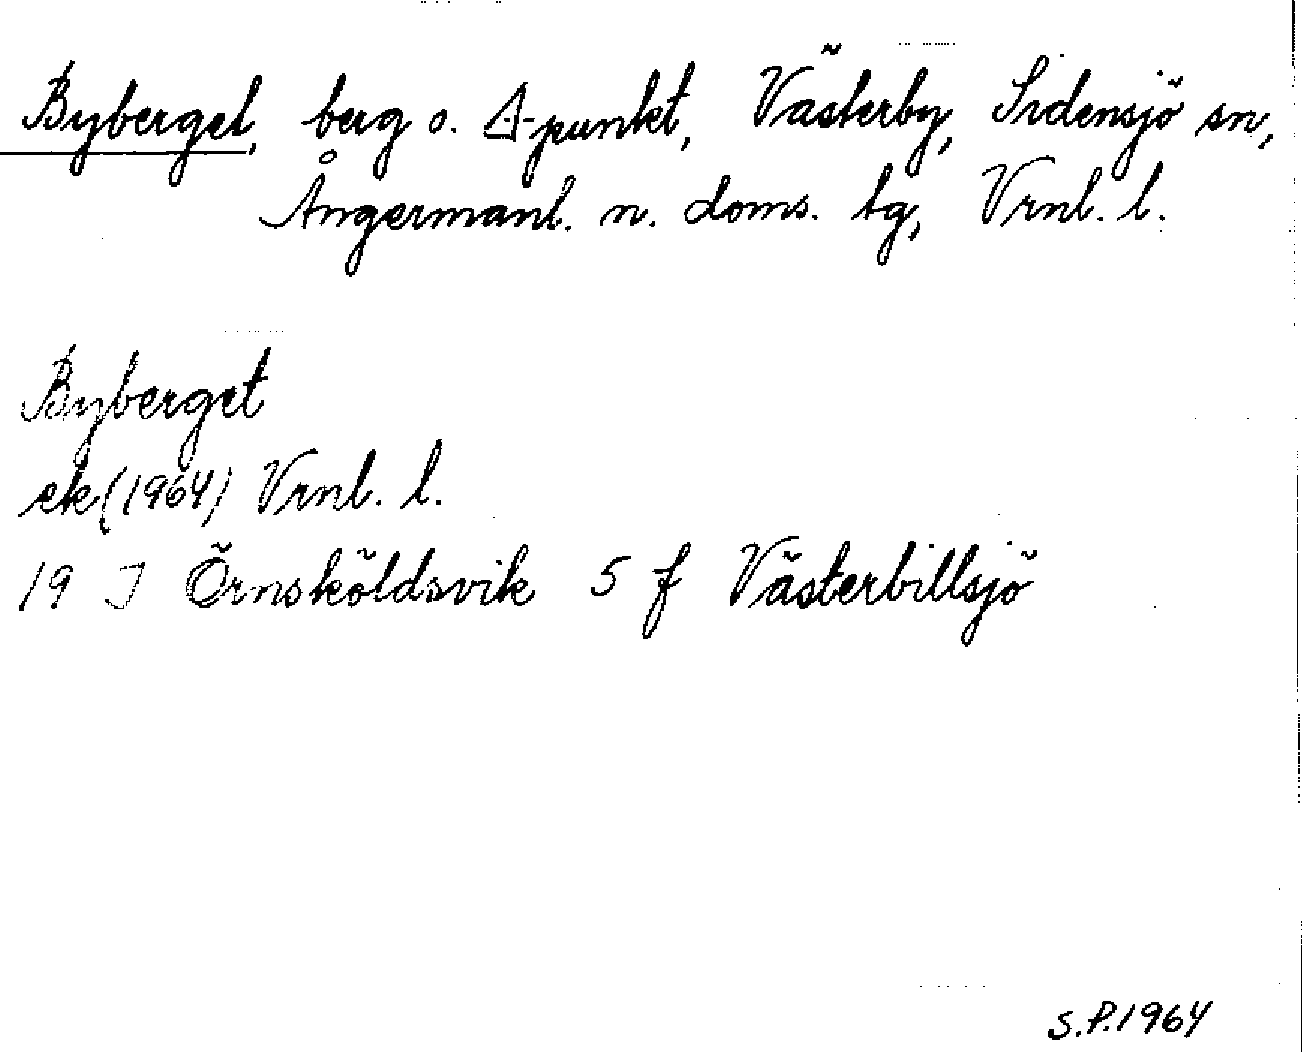 Byberget, berg o. △-punkt, Västerby, Sidensjö sn,
Ångermanl. n. doms. tg, Vrnl. l.
Byberget
ek (1964) Vrnl. l.
19 J Örnsköldsvik 5 f Västerbillsjö
S.P. 1964